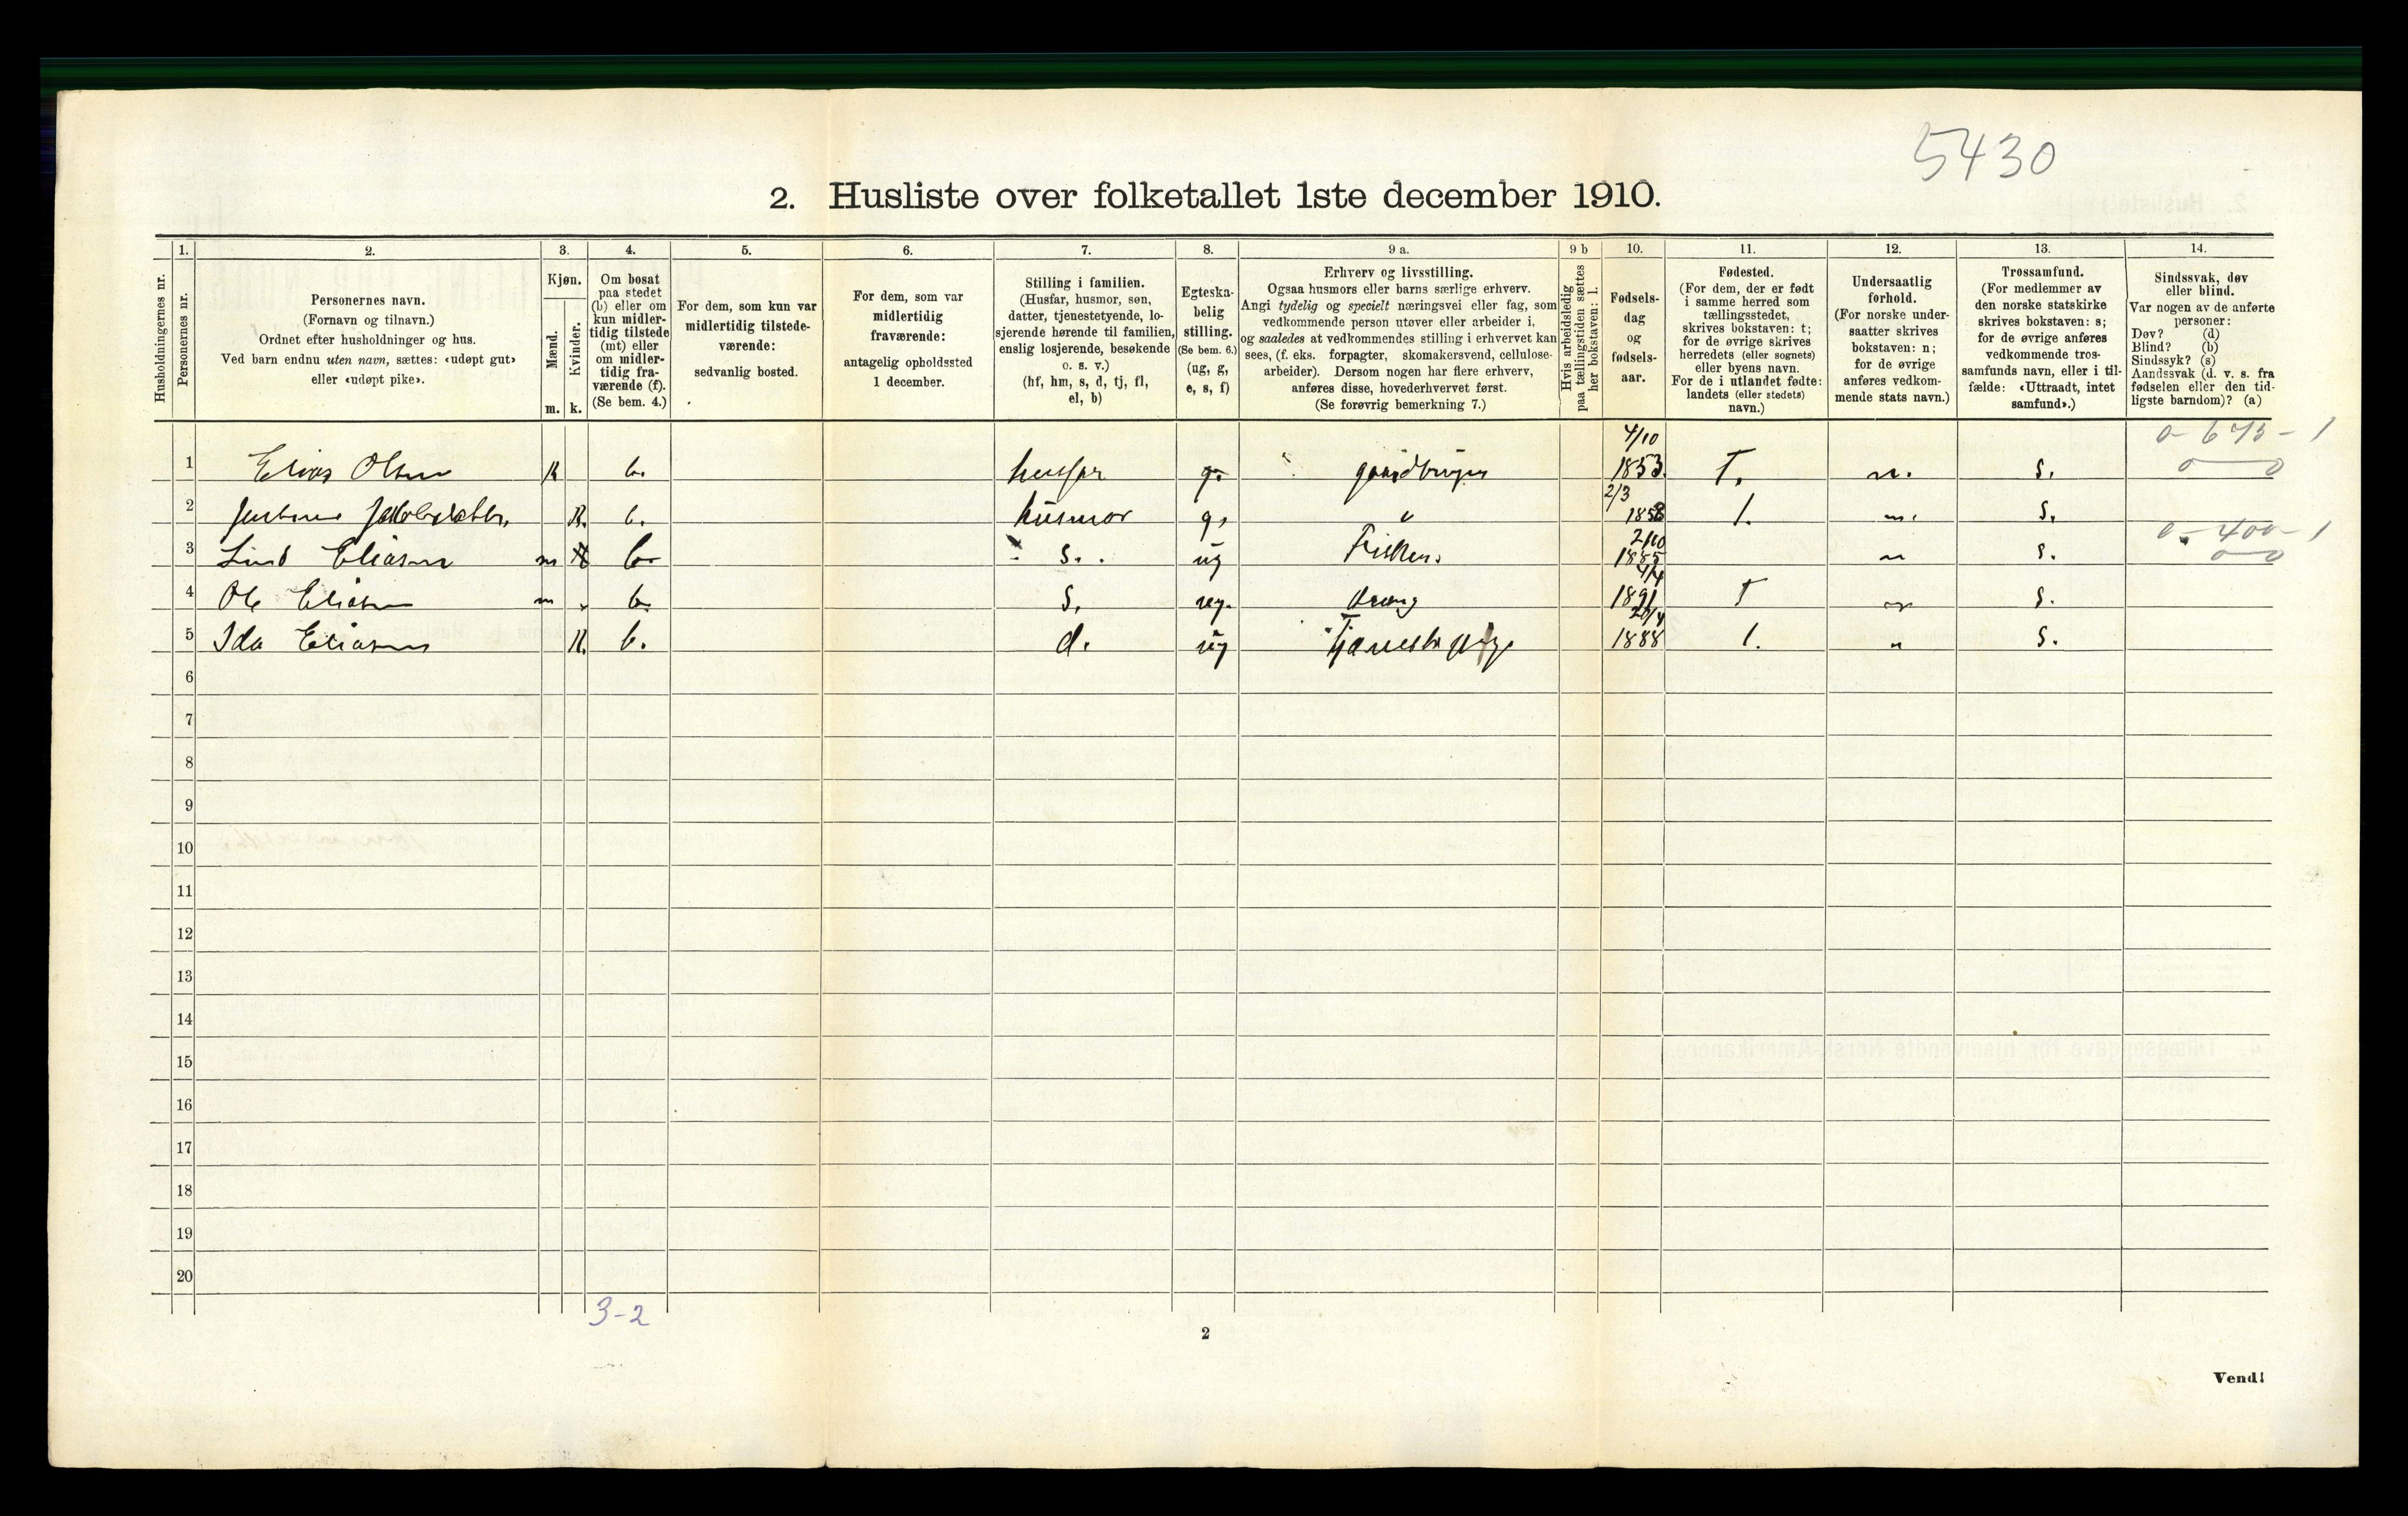 5430
2. Husliste over folketallet 1ste december 1910.
Husholdningernes nr.
1. Personernes nr.
2. Personernes navn.
(Fornavn og tilnavn.)
Ordnet efter husholdninger og hus.
Ved barn endnu uten navn, sættes: «udøpt gut»
eller «udøpt pike».
3. Kjøn.
Mænd. Kvinder.
m. k.
4. Om bosat
paa stedet
(b) eller om
kun midler-
tidig tilstede
(mt) eller
om midler-
tidig fra-
værende (f).
(Se bem. 4.)
5. For dem, som kun var
midlertidig tilstede-
værende:
sedvanlig bosted.
6. For dem, som var
midlertidig
fraværende:
antagelig opholdssted
1 december.
7. Stilling i familien.
(Husfar, husmor, søn,
datter, tjenestetyende, lo-
sjerende hørende til familien,
enslig losjerende, besøkende
o. s. v.)
(hf, hm, s, d, tj, fl,
el, b)
8. Egteska-
belig
stilling.
(Se bem. 6.)
(ug, g,
e, s, f)
9 a. Erhverv og livsstilling.
Ogsaa husmors eller barns særlige erhverv.
Angi tydelig og specielt næringsvei eller fag, som
vedkommende person utøver eller arbeider i,
og saaledes at vedkommendes stilling i erhvervet kan
sees, (f. eks. forpagter, skomakersvend, cellulose-
arbeider). Dersom nogen har flere erhverv,
anføres disse, hovederhvervet først.
(Se forøvrig bemerkning 7.)
9 b Hvis arbeidsledig
paa tællingstiden sættes
her bokstaven: l.
10. Fødsels-
dag
og
fødsels-
aar.
11. Fødested.
(For dem, der er født
i samme herred som
tællingsstedet,
skrives bokstaven: t;
for de øvrige skrives
herredets (eller sognets)
eller byens navn.
For de i utlandet fødte:
landets (eller stedets)
navn.)
12. Undersaatlig
forhold.
(For norske under-
saatter skrives
bokstaven: n;
for de øvrige
anføres vedkom-
mende stats navn.)
13. Trossamfund.
(For medlemmer av
den norske statskirke
skrives bokstaven: s;
for de øvrige anføres
vedkommende tros-
samfunds navn, eller i til-
fælde: «Uttraadt, intet
samfund».)
14. Sindssvak, døv
eller blind.
Var nogen av de anførte
personer:
Døv? (d)
Blind? (b)
Sindssyk? (s)
Aandssvak (d. v. s. fra
fødselen eller den tid-
ligste barndom)? (a)
1 Elias Olsen b. husfar g. gaardbruger 4/10 1853 T. n. s.
2 b. husmor g. 2/3 1858 n. s.
3 Eliasen m b s. ug Fisker. 2/10 1885 n s.
4 Ole Eliasen m b. s. ug. dreng 1891 T n s.
5 Ida Eliasen k. b. d. ug 1888 n s.
6
7
8
9
10
11
12
13
14
15
16
17
18
19
20
3-2
2
Vend!